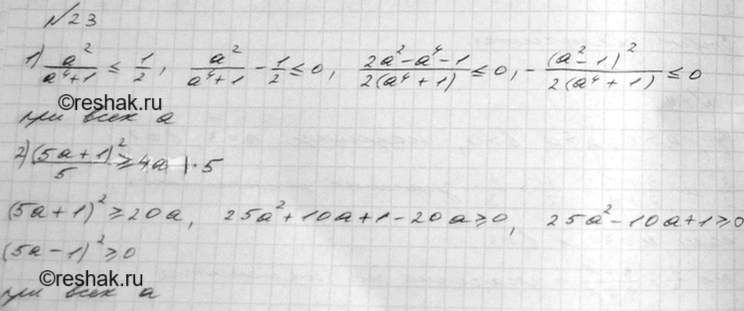 №23
1) a²/(a⁴+1) ≤ 1/2, a²/(a⁴+1) - 1/2 ≤ 0, (2a²-a⁴-1)/(2(a⁴+1)) ≤ 0, -(a²-1)²/(2(a⁴+1)) ≤ 0
при всех a
©reshak.ru
2) (5a+1)²/5 ≥ 4a |·5
(5a+1)² ≥ 20a, 25a²+10a+1-20a ≥ 0, 25a²-10a+1 ≥ 0
(5a-1)² ≥ 0
©reshak.ru
при всех a